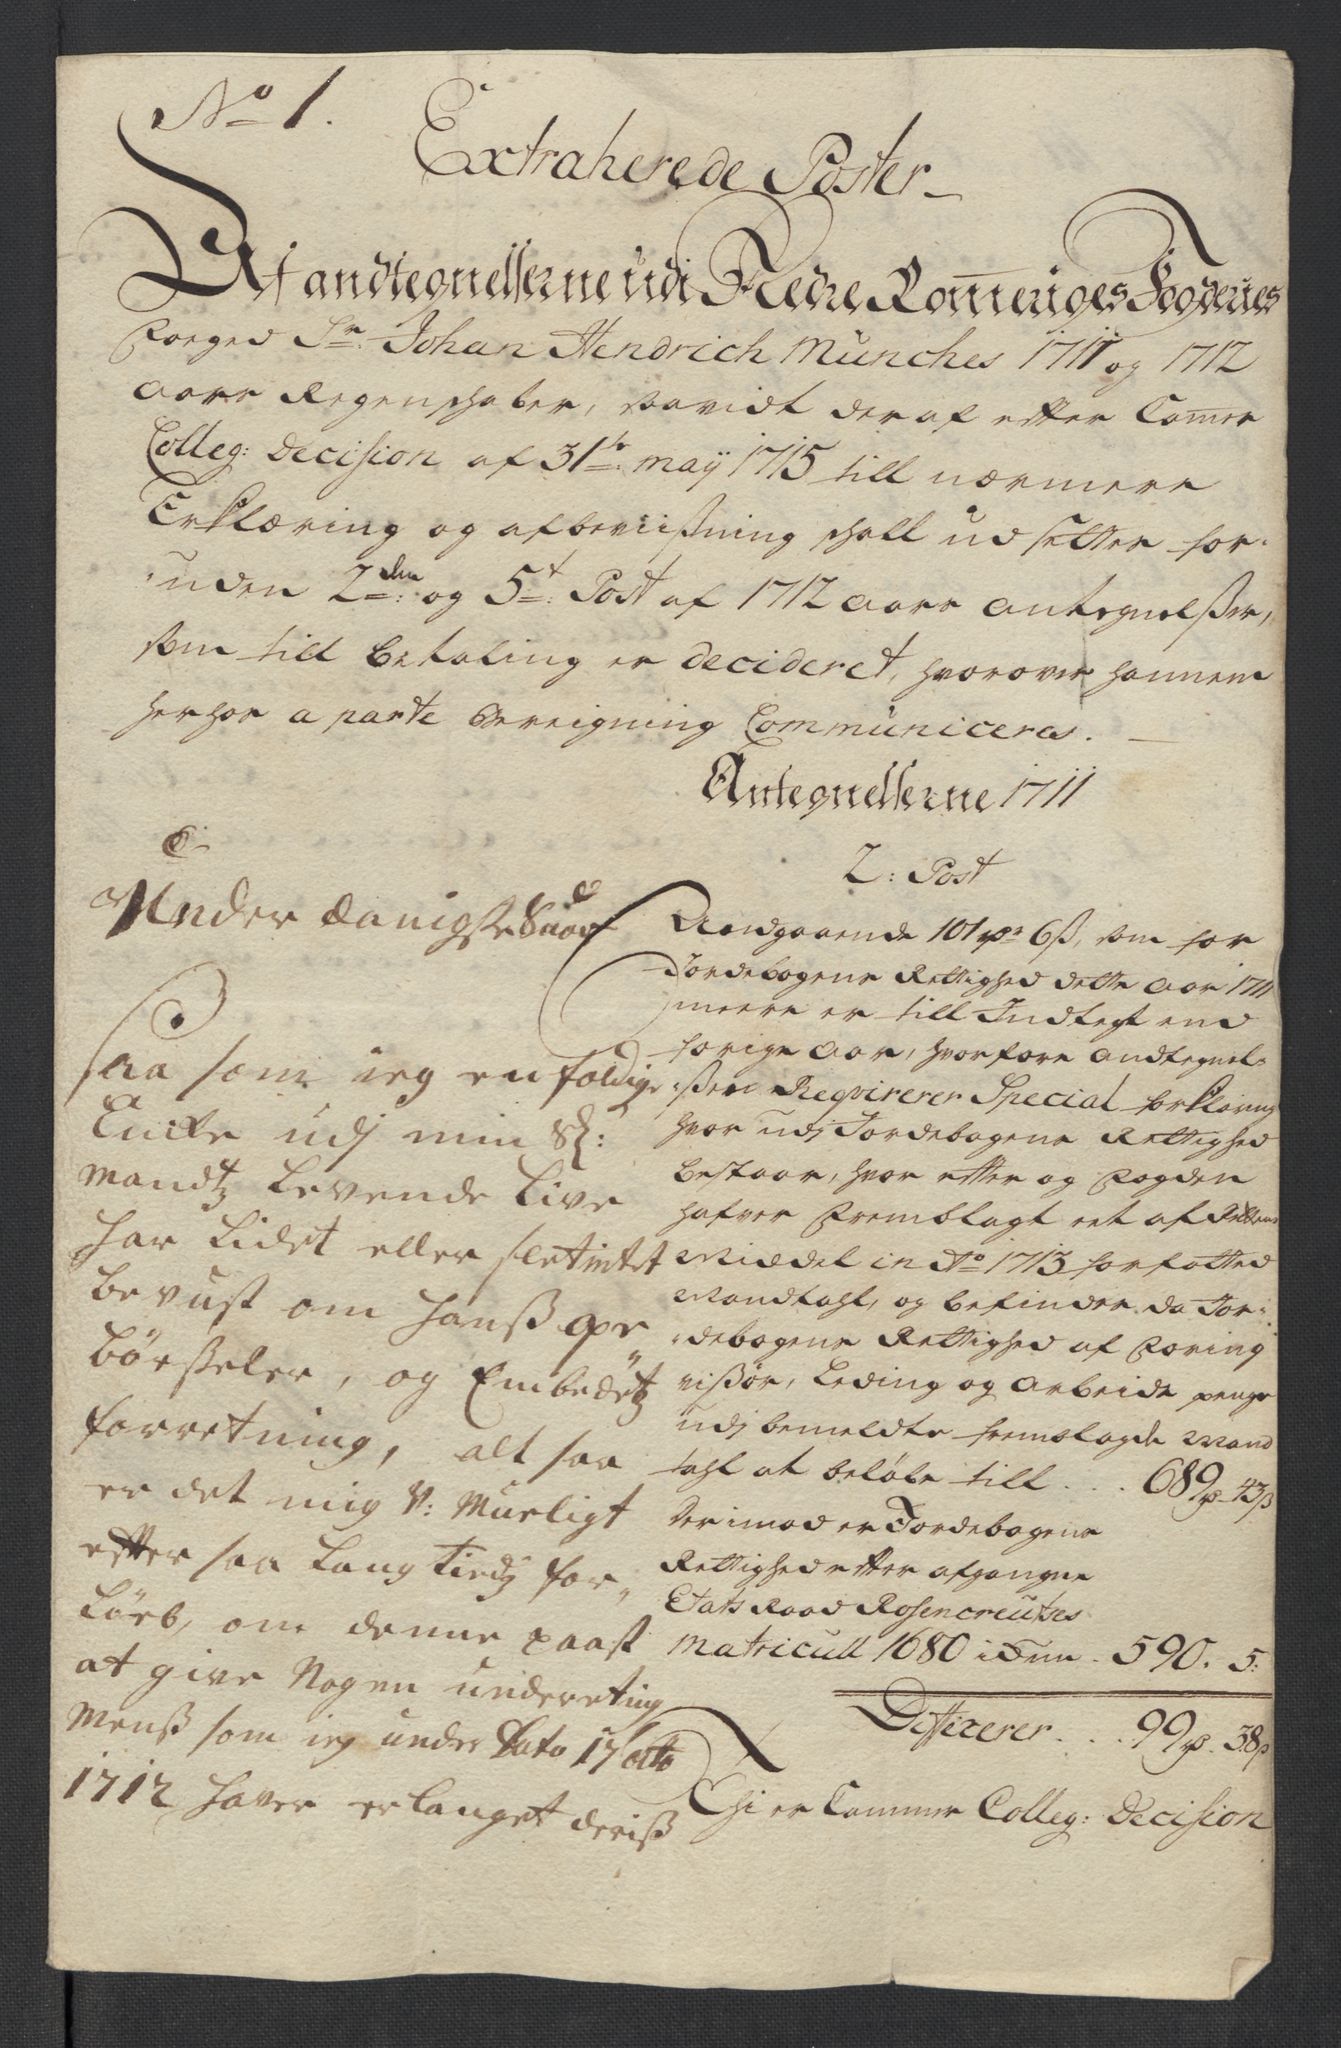 No 1.
Extraherede Poster
Af andtegnelsserne udi Nedre Romeriges Fogderies
Foeged Sr. Johan Hendrich Münches 1711 og 1712
aars Regenschaber, saavidt der af etter Camer
Colleg: Decision af 31te: maÿ 1715 till nærmere
Erklæring og afbeviisning schall ud settes for-
uden 2den: og 5t: Post af 1712 aars antegnelsser,
som till betaling er decideret, hvorover hannem
herhos a parte bereigning Communiceres.
Antegnelsserne 1711
2: Post
Underdanigste Suar
Saa som ieg enfoldige
Encke udj min Sl:
Mandtz Levende Live
har Lidet eller slet intet
bevust om hanss op-
börsseler, og Embedetz
forretning, alt saa
er det mig V: Mueligt
etter saa Lang tiedz for-
Lörb, om denne paast
at give Nogen underreting
Menss som ieg under Dato 17 octo
1712 haver erlanget deriss
Andgaaende 101 rdr 6 ss, som for
Jordebogens Rettighed dette aar 1711
meere er till Indtegt end
forige aar, hvorfore andtegnel-
ssen Reqvirerer Special forklaring
hvor udj Jordebogens Rettighed
bestaar, hvor etter og Fogden
hafver Fremblagt eet af Rettens
Middel in Ao 1713 forfatted
Mandtahl, og befindes da Jor-
debogens Rettighed af Foring
vissöre, Leding og arbeids penge
udj bemeldte fremlagde Mand
tahl at belöbe till . . . 689 rd 43 ss
Derimod er Jordebogens
Rettighed etter afgangne
Etats Raad Rosencreutses
Matricull 1680 ickun . 590. 5:
Differerer . . . 99 rd. 38 ss
Thi er Cammer Colleg: Decision